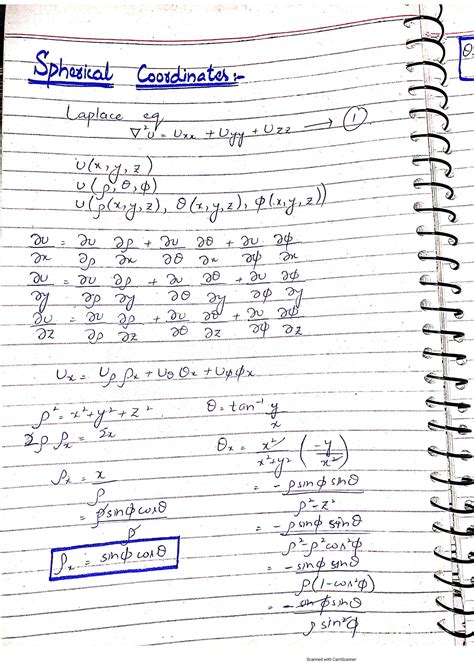 Spherical Coordinates:-
Laplace eq
∇²u = Uxx + Uyy + Uzz → ①
U(x, y, z)
U(ρ, θ, φ)
U(ρ(x,y,z), θ(x,y,z), φ(x,y,z))
∂u/∂x = ∂u/∂ρ ∂ρ/∂x + ∂u/∂θ ∂θ/∂x + ∂u/∂φ ∂φ/∂x
∂u/∂y = ∂u/∂ρ ∂ρ/∂y + ∂u/∂θ ∂θ/∂y + ∂u/∂φ ∂φ/∂y
∂u/∂z = ∂u/∂ρ ∂ρ/∂z + ∂u/∂θ ∂θ/∂z + ∂u/∂φ ∂φ/∂z
Ux = Uρ ρx + Uθ θx + Uφ φx
ρ² = x² + y² + z²
2ρ ρx = 2x
ρx = x/ρ
= ρ sinφ cosθ/ρ
ρx = sinφ cosθ
θ = tan⁻¹ y/x
θx = x²/x²+y² (-y/x²)
= -ρ sinφ sinθ/ρ²-z²
= -ρ sinφ sinθ/ρ²-ρ²cos²φ
= -sinφ sinθ/ρ(1-cos²φ)
= -sinφ sinθ/ρ sin²φ
Scanned with CamScanner